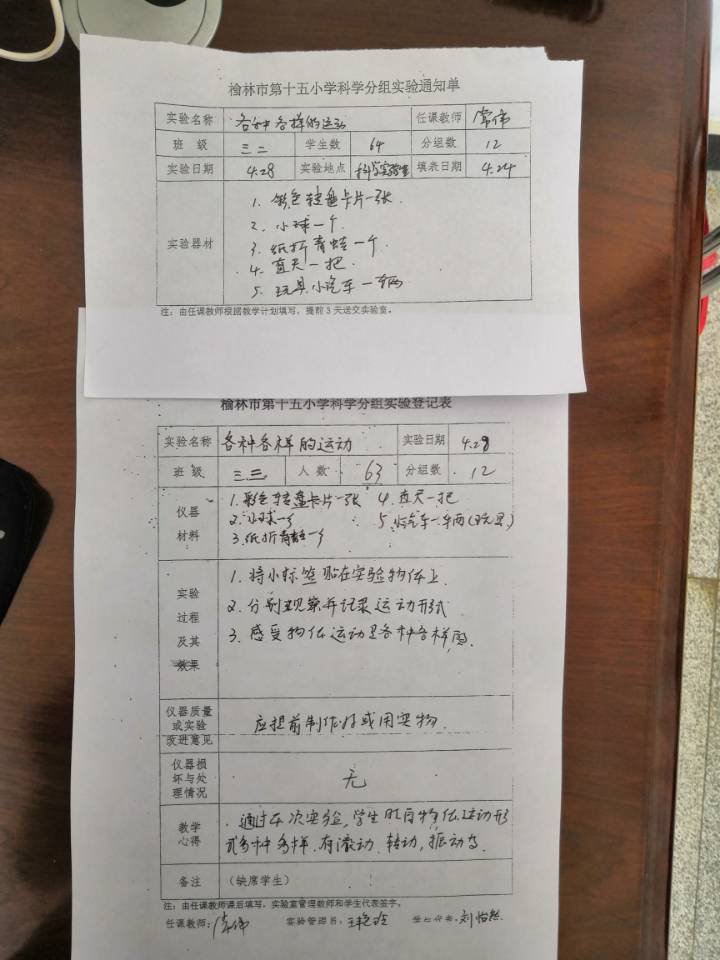 榆林市第十五小学科学分组实验通知单
实验名称 各种各样的运动 任课教师 常伟
班 级 三二 学生数 64 分组数 12
实验日期 4.28 实验地点 科学实验室 填表日期 4.24
实验器材
1. 彩色转盘卡片一张.
2. 小球一个.
3. 纸折青蛙一个.
4. 直尺一把.
5. 玩具小汽车一辆
注：由任课教师根据教学计划填写，提前 3 天送交实验室。
榆林市第十五小学科学分组实验登记表
实验名称 各种各样的运动 实验日期 4.28
班 级 三.三 人 数 63 分组数 12
仪器材料
1. 彩色转盘卡片一张 4. 直尺一把
2. 小球一个 5. 小汽车一车两(玩具)
3. 纸折青蛙一个
实验过程及其效果
1. 将小标签贴在实验物体上.
2. 分别观察并记录运动形式
3. 感受物体运动是各种各样的.
仪器质量或实验改进意见
应提前制作好或用实物.
仪器损坏与处理情况
无
教学心得
通过本次实验,学生明白物体运动形
式多种多样.有滚动.转动,振动等.
备注 （缺席学生）
注：由任课教师课后填写，实验室管理教师和学生代表签字。
任课教师：常伟 实验管理员：王艳玲 学生代表：刘怡然